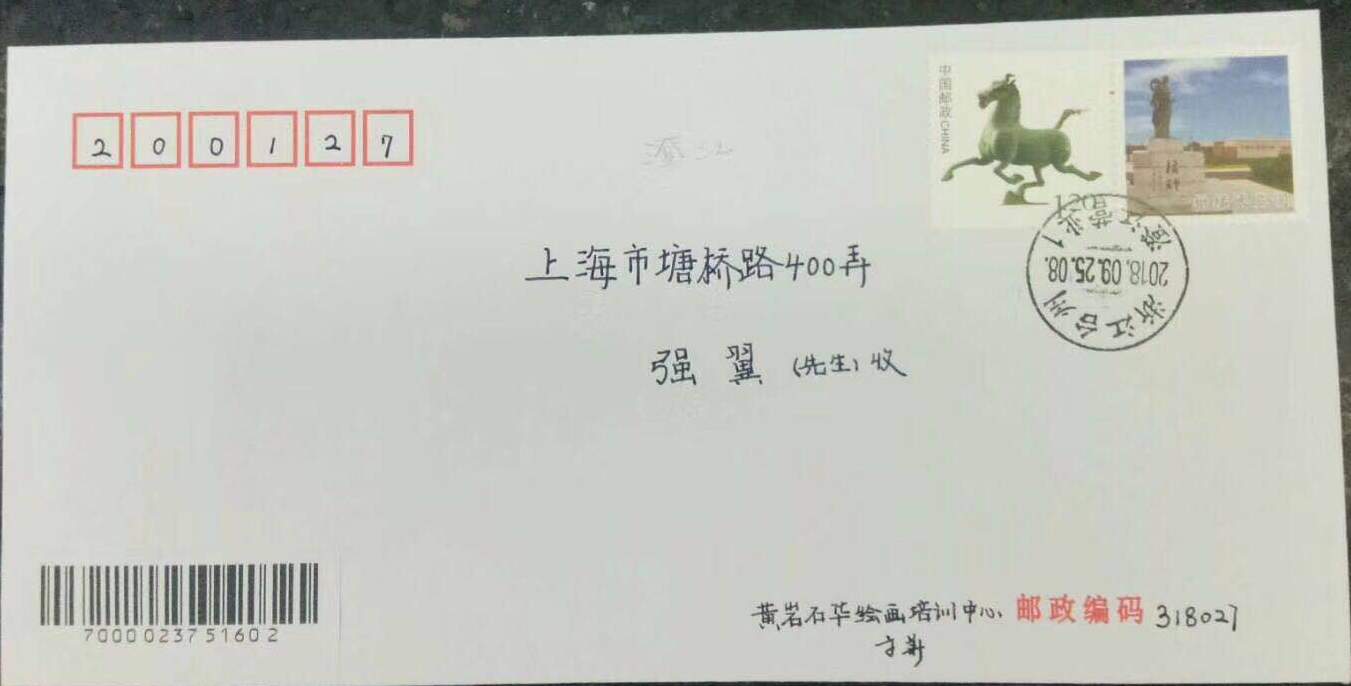 200127
中国邮政 CHINA
1.20
上海市塘桥路400弄
2018.09.25.08.
浙江台州
强翼(先生)收
7000023751602
黄岩石华绘画培训中心 邮政编码 318027